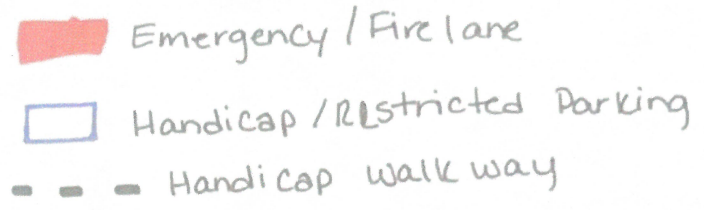 Emergency / Fire lane
Handicap / Restricted Parking
Handicap walkway